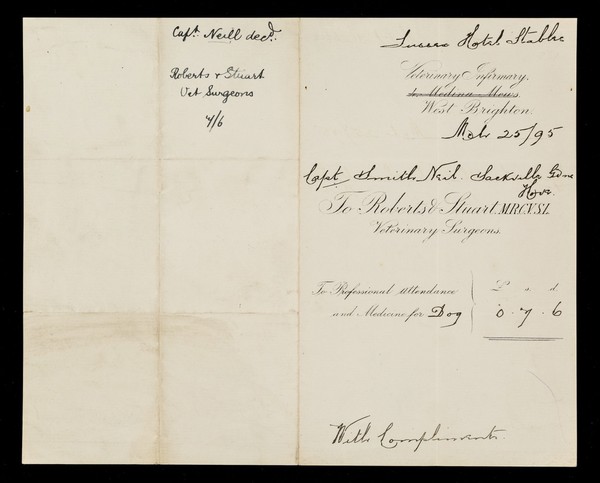 Capt. Neill decd.
Roberts & Stuart
Vet Surgeons
7/6
Sussex Hotel Stables
Veterinary Infirmary,
Medina Mews.
West Brighton.
25/95
Capt Smith Neil. Sackville Gdns
Hove.
To Roberts & Stuart, M.R.C.V.S.L.
Veterinary Surgeons.
To Professional Attendance
and Medicine for Dog
£ s d
0 . 7 . 6
With Compliments.